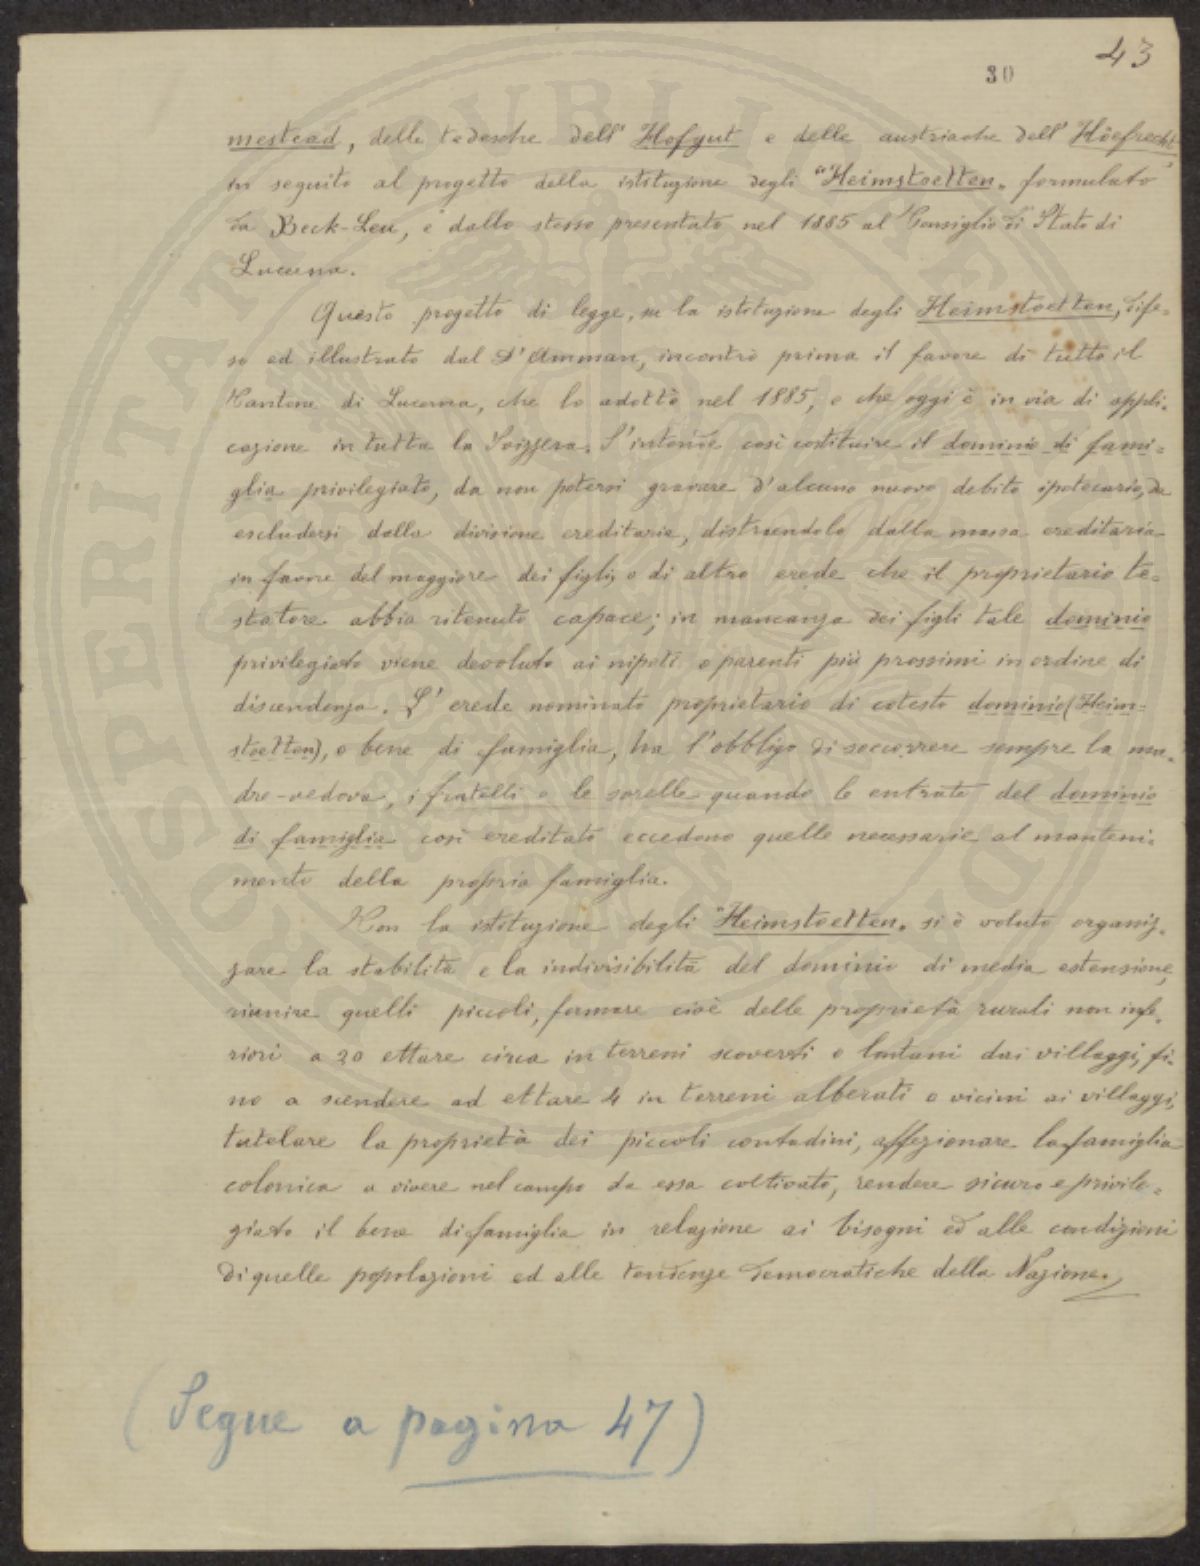 43
30
mestead, delle tedesche dell' Hofgut e delle austriache dell' Höefrecht
in seguito al progetto della istituzione degli "Heimstoetten" formulato
da Beck-Leu, e dallo stesso presentato nel 1885 al Consiglio di Stato di
Lucerna.
Questo progetto di legge, su la istituzione degli Heimstoetten, dife-
so ed illustrato dal Dr Amman, incontrò prima il favore di tutto il
Cantone di Lucerna, che lo adottò nel 1885, e che oggi è in via di appli-
cazione in tutta la Svizzera. S'intende così costituire il dominio di fami-
glia privilegiato, da non potersi gravare d'alcuno nuovo debito ipotecario, da
escludersi dalla divisione ereditaria, distraendolo dalla massa ereditaria
in favore del maggiore dei figli, o di altro erede che il proprietario te-
statore abbia ritenuto capace; in mancanza dei figli tale dominio
privilegiato viene devoluto ai nipoti o parenti più prossimi in ordine di
discendenza. L'erede nominato proprietario di cotesto dominio (Heim-
stoetten), o bene di famiglia, ha l'obbligo di soccorrere sempre la ma-
dre-vedova, i fratelli e le sorelle quando le entrate del dominio
di famiglia così ereditato eccedono quelle necessarie al manteni-
mento della propria famiglia.
Con la istituzione degli "Heimstoetten" si è voluto organiz-
zare la stabilità e la indivisibilità del dominio di media estensione,
riunire quelli piccoli, formare cioè delle proprietà rurali non infe-
riori a 20 ettare circa in terreni scoverti e lontani dai villaggi, fi-
no a scendere ad ettare 4 in terreni alberati e vicini ai villaggi,
tutelare la proprietà dei piccoli contadini, affezionare la famiglia
colonica a vivere nel campo da essa coltivato, rendere sicuro e privile-
giato il bene di famiglia in relazione ai bisogni ed alle condizioni
di quelle popolazioni ed alle tendenze democratiche della Nazione.
(Segue a pagina 47)